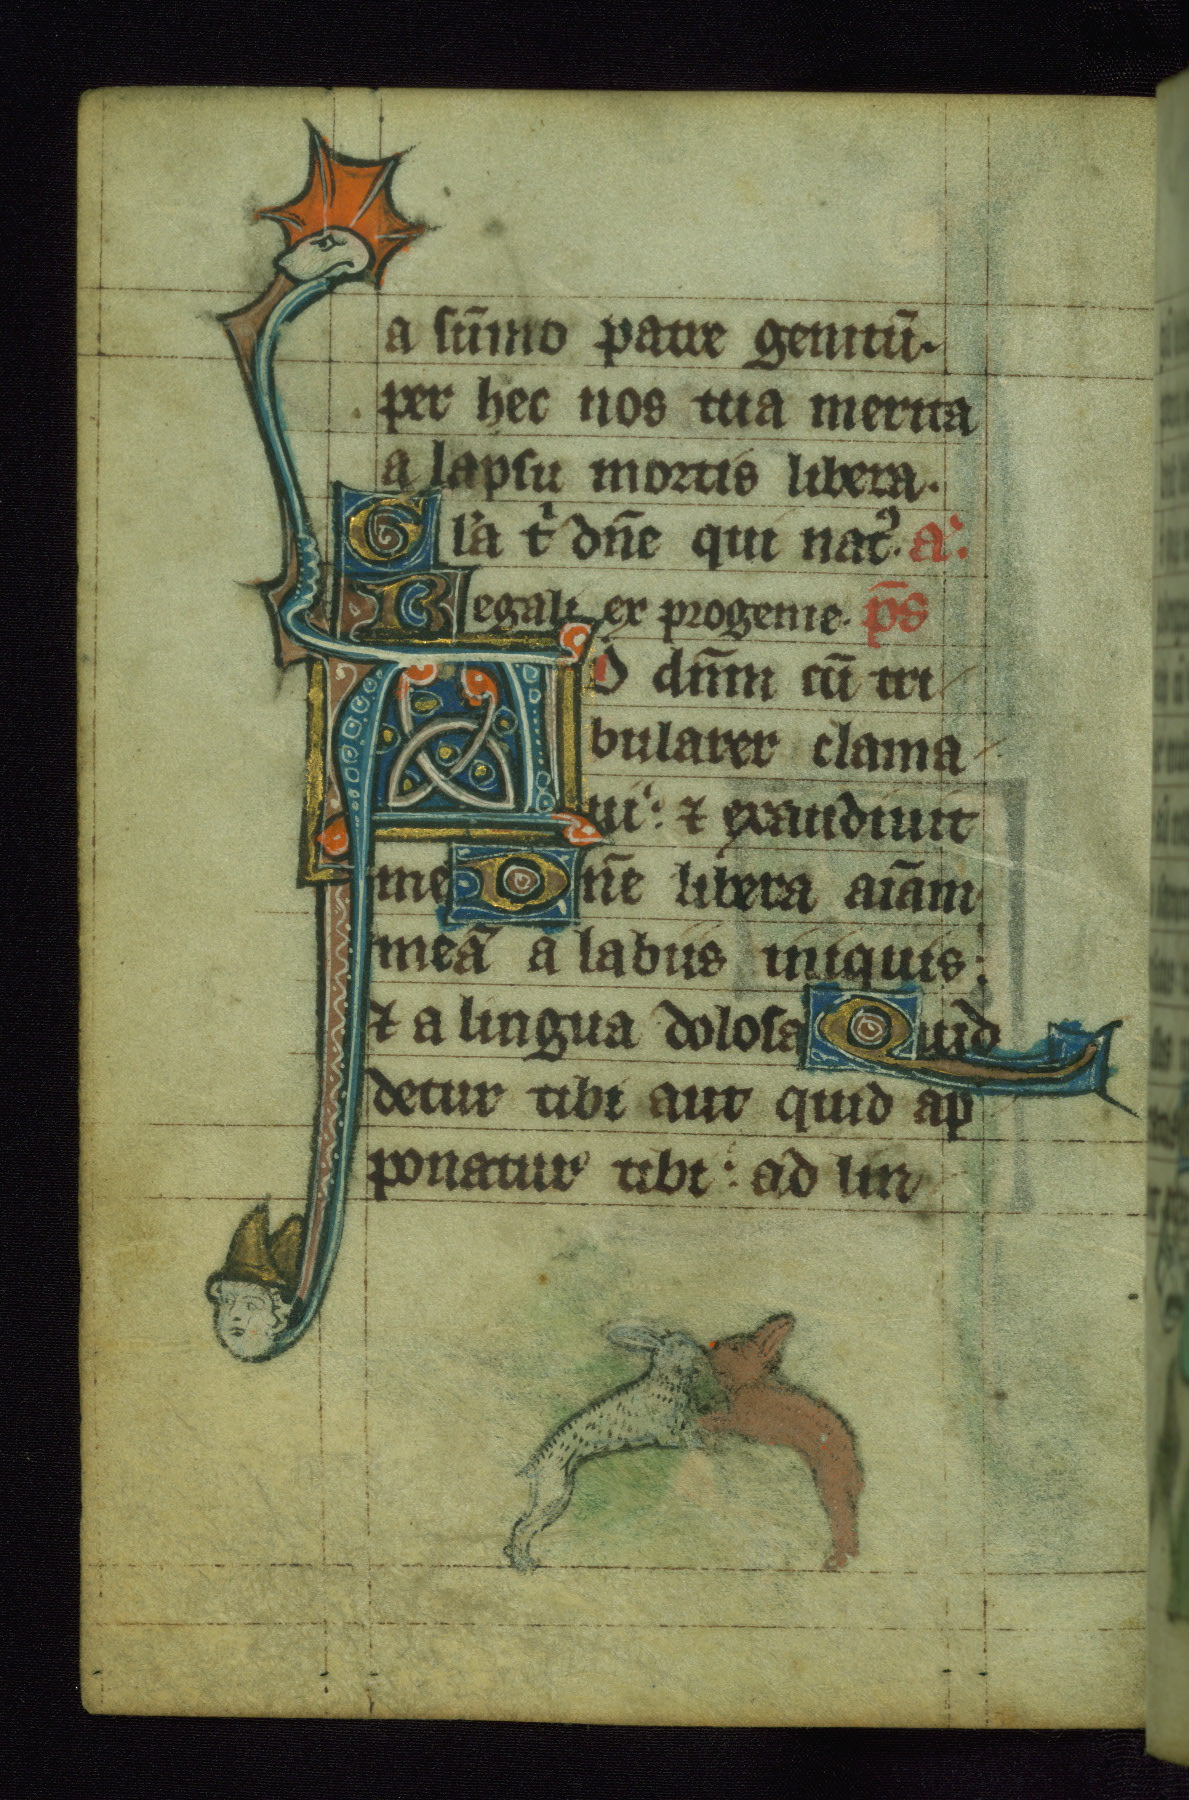 a su̅mo patre genitu̅.
per hec nos tua merita
a lapsu mortis libera.
Gl'a tͥ dn̅e qui natꝰ. a͛.
Regali ex progenie. p̅s
AD dn̅m cu̅ tri
bularer clama
ui: ⁊ exaudiuit
me Dn̅e libera ai̅am
mea̅ a labiis iniquis:
⁊ a lingua dolosa Quid
detur tibi aut quid ap
ponatur tibi: ad lin